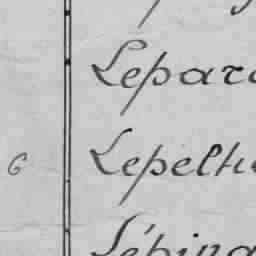 Lepar
6 Lepelti
Lépina